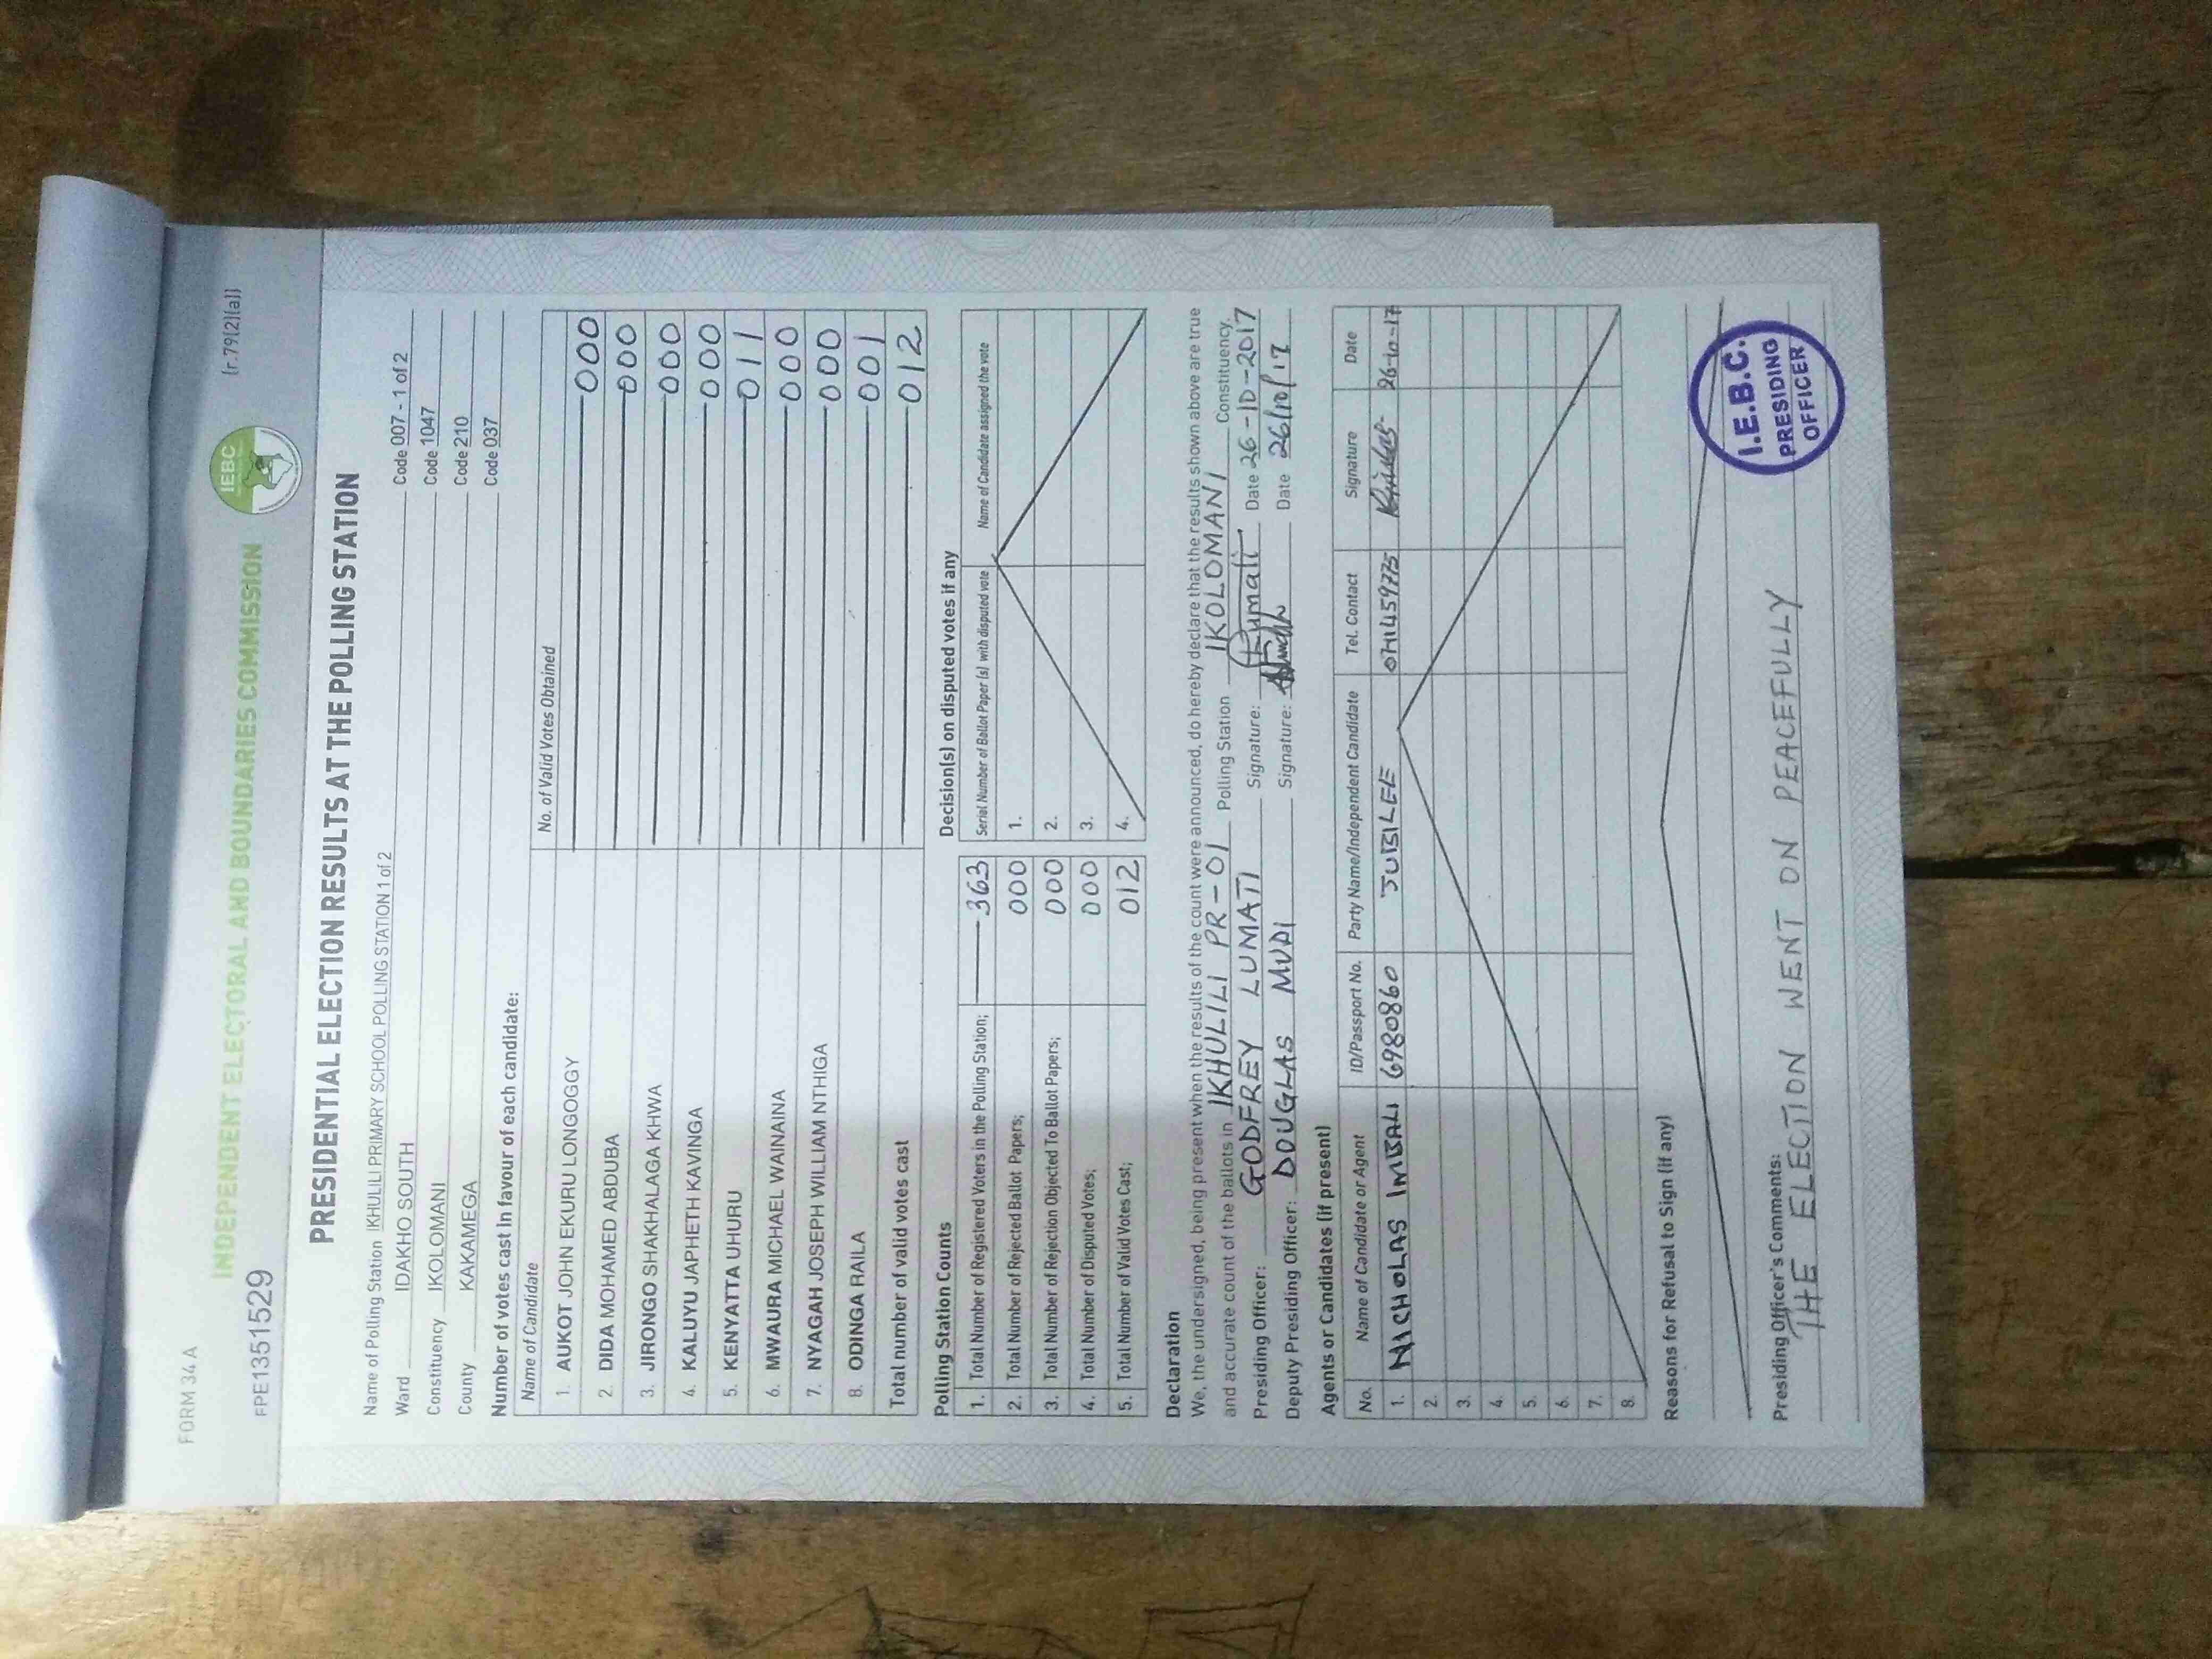 FORM 34A
INDEPENDENT ELECTORAL AND BOUNDARIES COMMISSION
IEBC
(r.79(2)(a))
FPE1351529
PRESIDENTIAL ELECTION RESULTS AT THE POLLING STATION
Name of Polling Station IKHULILI PRIMARY SCHOOL POLLING STATION 1 of 2 Code 007 - 1 of 2
Ward IDAKHO SOUTH Code 1047
Constituency IKOLOMANI Code 210
County KAKAMEGA Code 037
Number of votes cast in favour of each candidate:
Name of Candidate No. of Valid Votes Obtained
1. AUKOT JOHN EKURU LONGOGGY 000
2. DIDA MOHAMED ABDUBA 000
3. JIRONGO SHAKHALAGA KHWA 000
4. KALUYU JAPHETH KAVINGA 000
5. KENYATTA UHURU 011
6. MWAURA MICHAEL WAINAINA 000
7. NYAGAH JOSEPH WILLIAM NTHIGA 000
8. ODINGA RAILA 001
Total number of valid votes cast 012
Polling Station Counts
1. Total Number of Registered Voters in the Polling Station; 363
2. Total Number of Rejected Ballot Papers; 000
3. Total Number of Rejection Objected To Ballot Papers; 000
4. Total Number of Disputed Votes; 000
5. Total Number of Valid Votes Cast; 012
Decision(s) on disputed votes if any
Serial Number of Ballot Paper (s) with disputed vote Name of Candidate assigned the vote
1.
2.
3.
4.
Declaration
We, the undersigned, being present when the results of the count were announced, do hereby declare that the results shown above are true
and accurate count of the ballots in IKHULILI PR-01 Polling Station IKOLOMANI Constituency.
Presiding Officer: GODFREY LUMATI Signature: Date 26-10-2017
Deputy Presiding Officer: DOUGLAS MUDI Signature: Date 26/10/17
Agents or Candidates (if present)
No. Name of Candidate or Agent ID/Passport No. Party Name/Independent Candidate Tel. Contact Signature Date
1. NICHOLAS IMBALI 6980860 JUBILEE 0714159775 26-10-17
2.
3.
4.
5.
6.
7.
8.
Reasons for Refusal to Sign (if any)
Presiding Officer's Comments:
THE ELECTION WENT ON PEACEFULLY
I.E.B.C.
PRESIDING
OFFICER